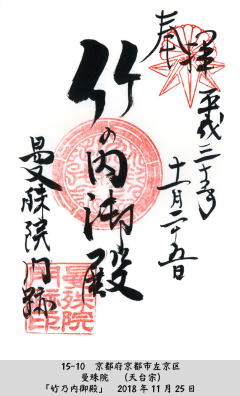 奉拝
平成三十年
十一月二十五日
竹の内御殿
曼殊院門跡
15-10 京都府京都市左京区
曼珠院 (天台宗)
「竹乃内御殿」 2018年11月25日